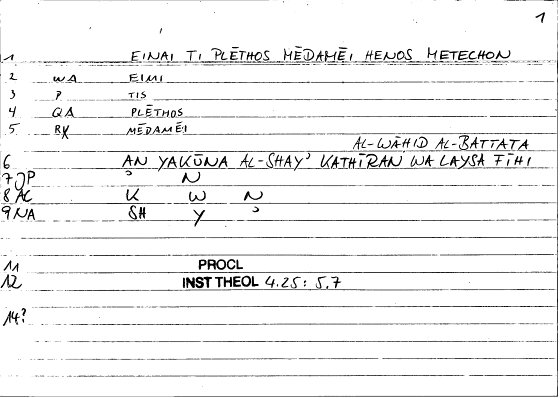 1
1 EINAI TI PLĒTHOS MĒDAMĒI HENOS METECHON
2 WA EIMI
3 P TIS
4 QA PLĒTHOS
5 RX MĒDAMĒI
AL-WĀHID AL-BATTATA
6 AN YAKŪNA AL-SHAY' KATHĪRAN WA LAYSA FĪHI
7 JP ' N
8 AC K W N
9 NA SH Y '
11 PROCL
12 INST THEOL 4.25: 5.7
14?